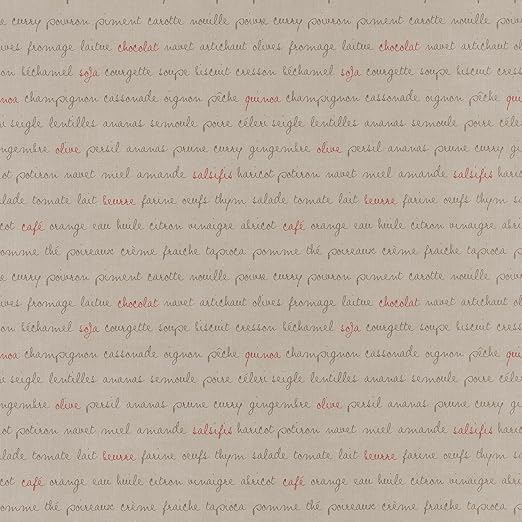 curry poivron piment carotte nouille poivre curry poivron piment carotte nouille poivre
fromage laitue chocolat navet artichaut olives fromage laitue chocolat navet artichaut
béchamel soja courgette soupe biscuit cresson béchamel soja courgette soupe biscuit
champignon cassonade oignon pêche quinoa champignon cassonade oignon pêche
seigle lentilles ananas semoule poire céleri seigle lentilles ananas semoule poire céleri
olive persil ananas prune curry gingembre olive persil ananas prune curry
potiron navet miel amande salsifis haricot potiron navet miel amande salsifis
tomate lait beurre farine oeufs thym salade tomate lait beurre farine oeufs thym
café orange eau huile citron vinaigre abricot café orange eau huile citron vinaigre
thé poireaux crème fraiche tapioca pomme thé poireaux crème fraiche
curry poivron piment carotte nouille poivre curry poivron piment carotte nouille poivre
fromage laitue chocolat navet artichaut olives fromage laitue chocolat navet artichaut
béchamel soja courgette soupe biscuit cresson béchamel soja courgette soupe biscuit
champignon cassonade oignon pêche quinoa champignon cassonade oignon pêche
seigle lentilles ananas semoule poire céleri seigle lentilles ananas semoule poire céleri
olive persil ananas prune curry gingembre olive persil ananas prune curry
potiron navet miel amande salsifis haricot potiron navet miel amande salsifis
tomate lait beurre farine oeufs thym salade tomate lait beurre farine oeufs thym
café orange eau huile citron vinaigre abricot café orange eau huile citron vinaigre
thé poireaux crème fraiche tapioca pomme thé poireaux crème fraiche